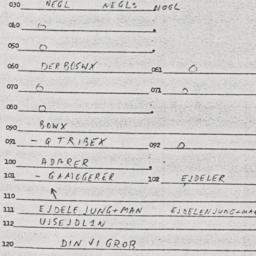 030 NEGL NEGL: NOGL
040 O
050 O
060 DERBOSWX 061 O
070 O 071 O
080 O
090 BOWX
091 - QTRIBEX 092 O
100 ADARER
101 - GAMOGERER 102 EJDELER
110
111 EJDELE JUNG+MAN EJDELENJUNG+MA
112 UJSEJDLIN
120 DIN VI GROR